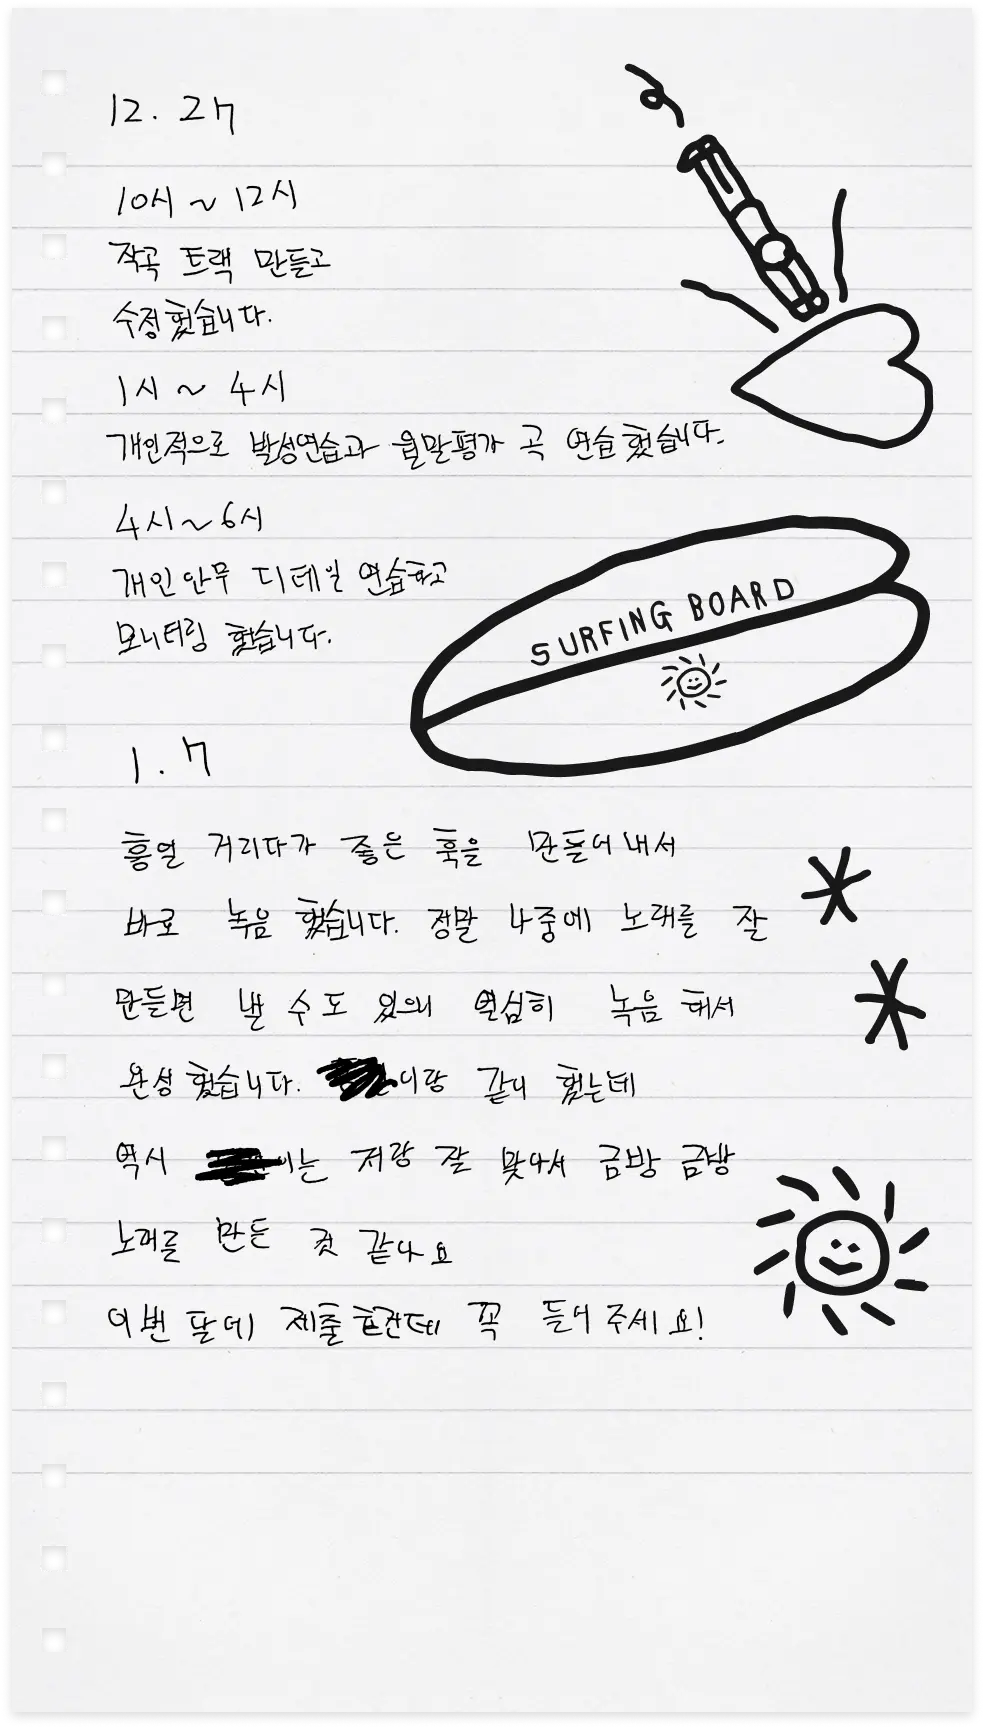 12. 27
10시 ~ 12시
작곡 트랙 만들고
수정했습니다.
1시 ~ 4시
개인적으로 발성연습과 월말평가 곡 연습했습니다.
4시 ~ 6시
개인안무 디테일 연습하고
모니터링 했습니다.
SURFING BOARD
1. 7
흥얼 거리다가 좋은 훅을 만들어내서
바로 녹음 했습니다. 정말 나중에 노래를 잘
만들면 낼 수도 있으니 열심히 녹음 해서
완성 했습니다. 이랑 같이 했는데
역시 이는 저랑 잘 맞아서 금방 금방
노래를 만든 것 같아요
이번 달에 제출할건데 꼭 들어주세요!